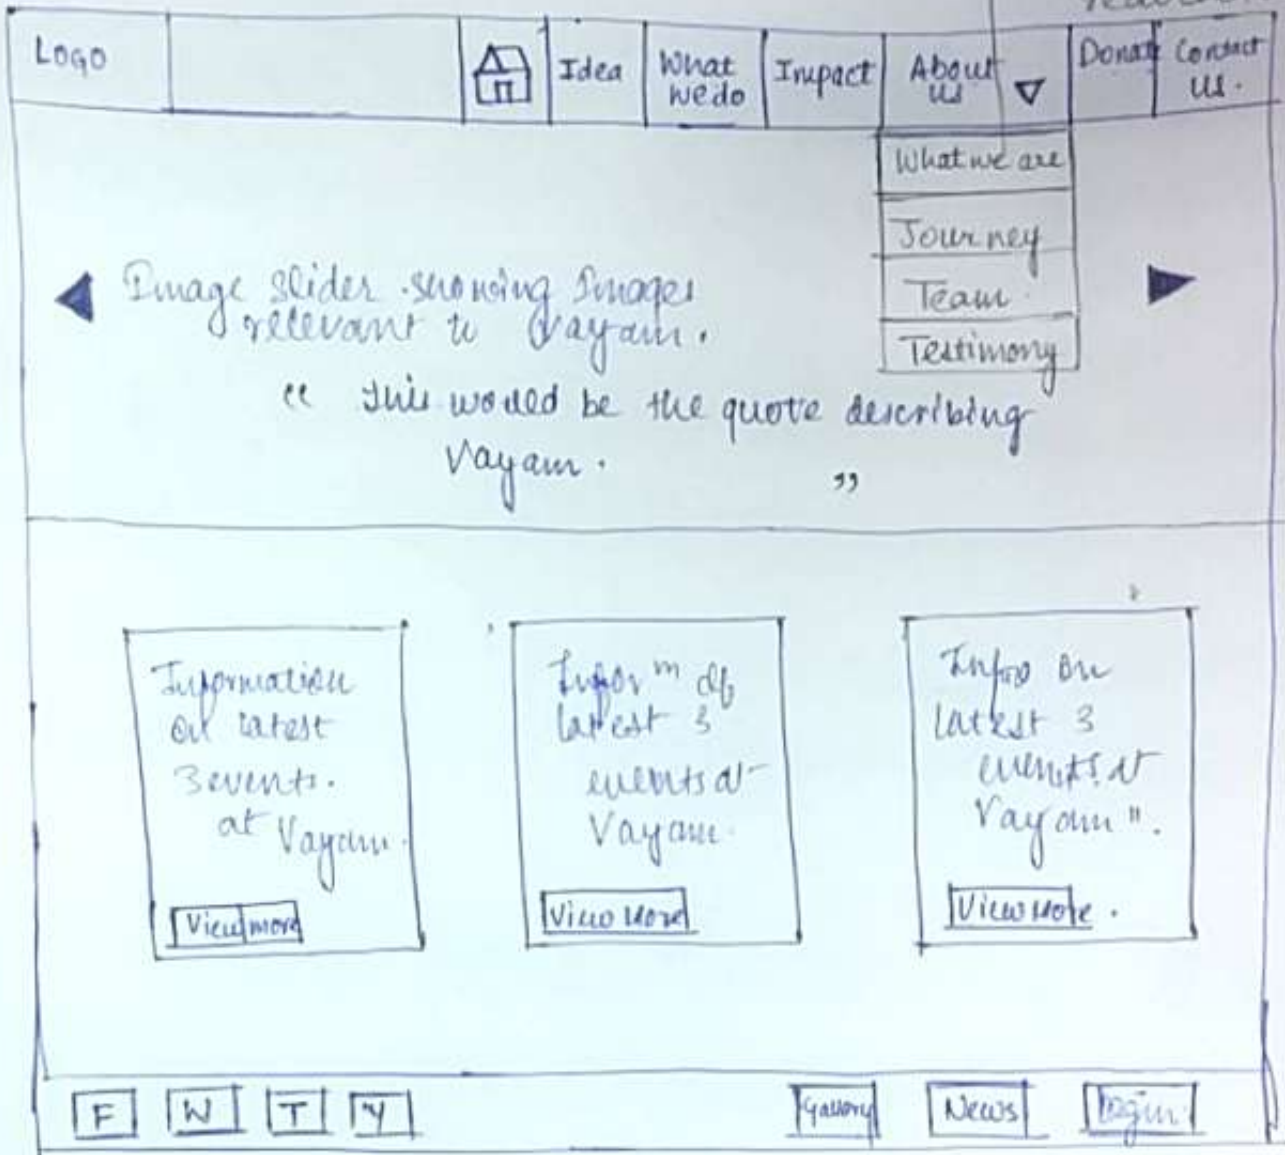 Logo
Idea
What
we do
Impact
About
us
Donate
Contact
us.
What we are
Journey
Team.
Testimony
Image slider showing Images
relevant to Vayam.
“ This would be the quote describing
Vayam. ”
Information
on latest
3 events.
at Vayam.
View more
Inforᵐ of
latest 3
events at
Vayam.
View More
Info on
latest 3
events at
Vayam ".
View More.
F
W
T
Y
Gallery
News
Login